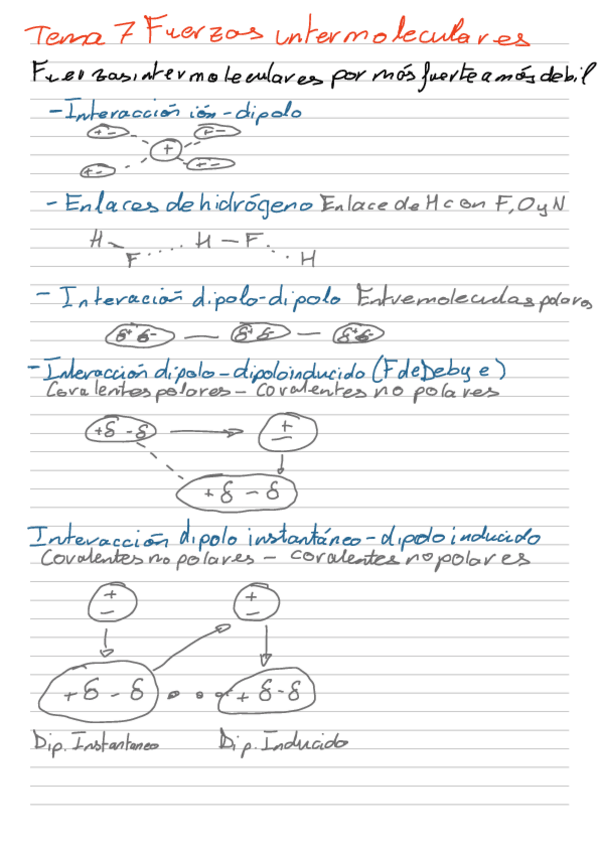 Tema 7 Fuerzas intermoleculares
Fuerzas intermoleculares por más fuerte a más debil
- Interacción ión-dipolo
+ - + -
+
+ - + -
- Enlaces de hidrógeno Enlace de H con F, O y N
H H - F
F H
- Interación dipolo-dipolo Entre moleculas polares
δ+ δ- — δ+ δ- — δ+ δ-
- Interacción dipolo-dipolo inducido (F de Debye)
Covalentes polares - Covalentes no polares
+δ -δ + -
+δ -δ
Interacción dipolo instantáneo-dipolo inducido
Covalentes no polares - covalentes no polares
+ - + -
+δ -δ +δ -δ
Dip. Instantaneo Dip. Inducido